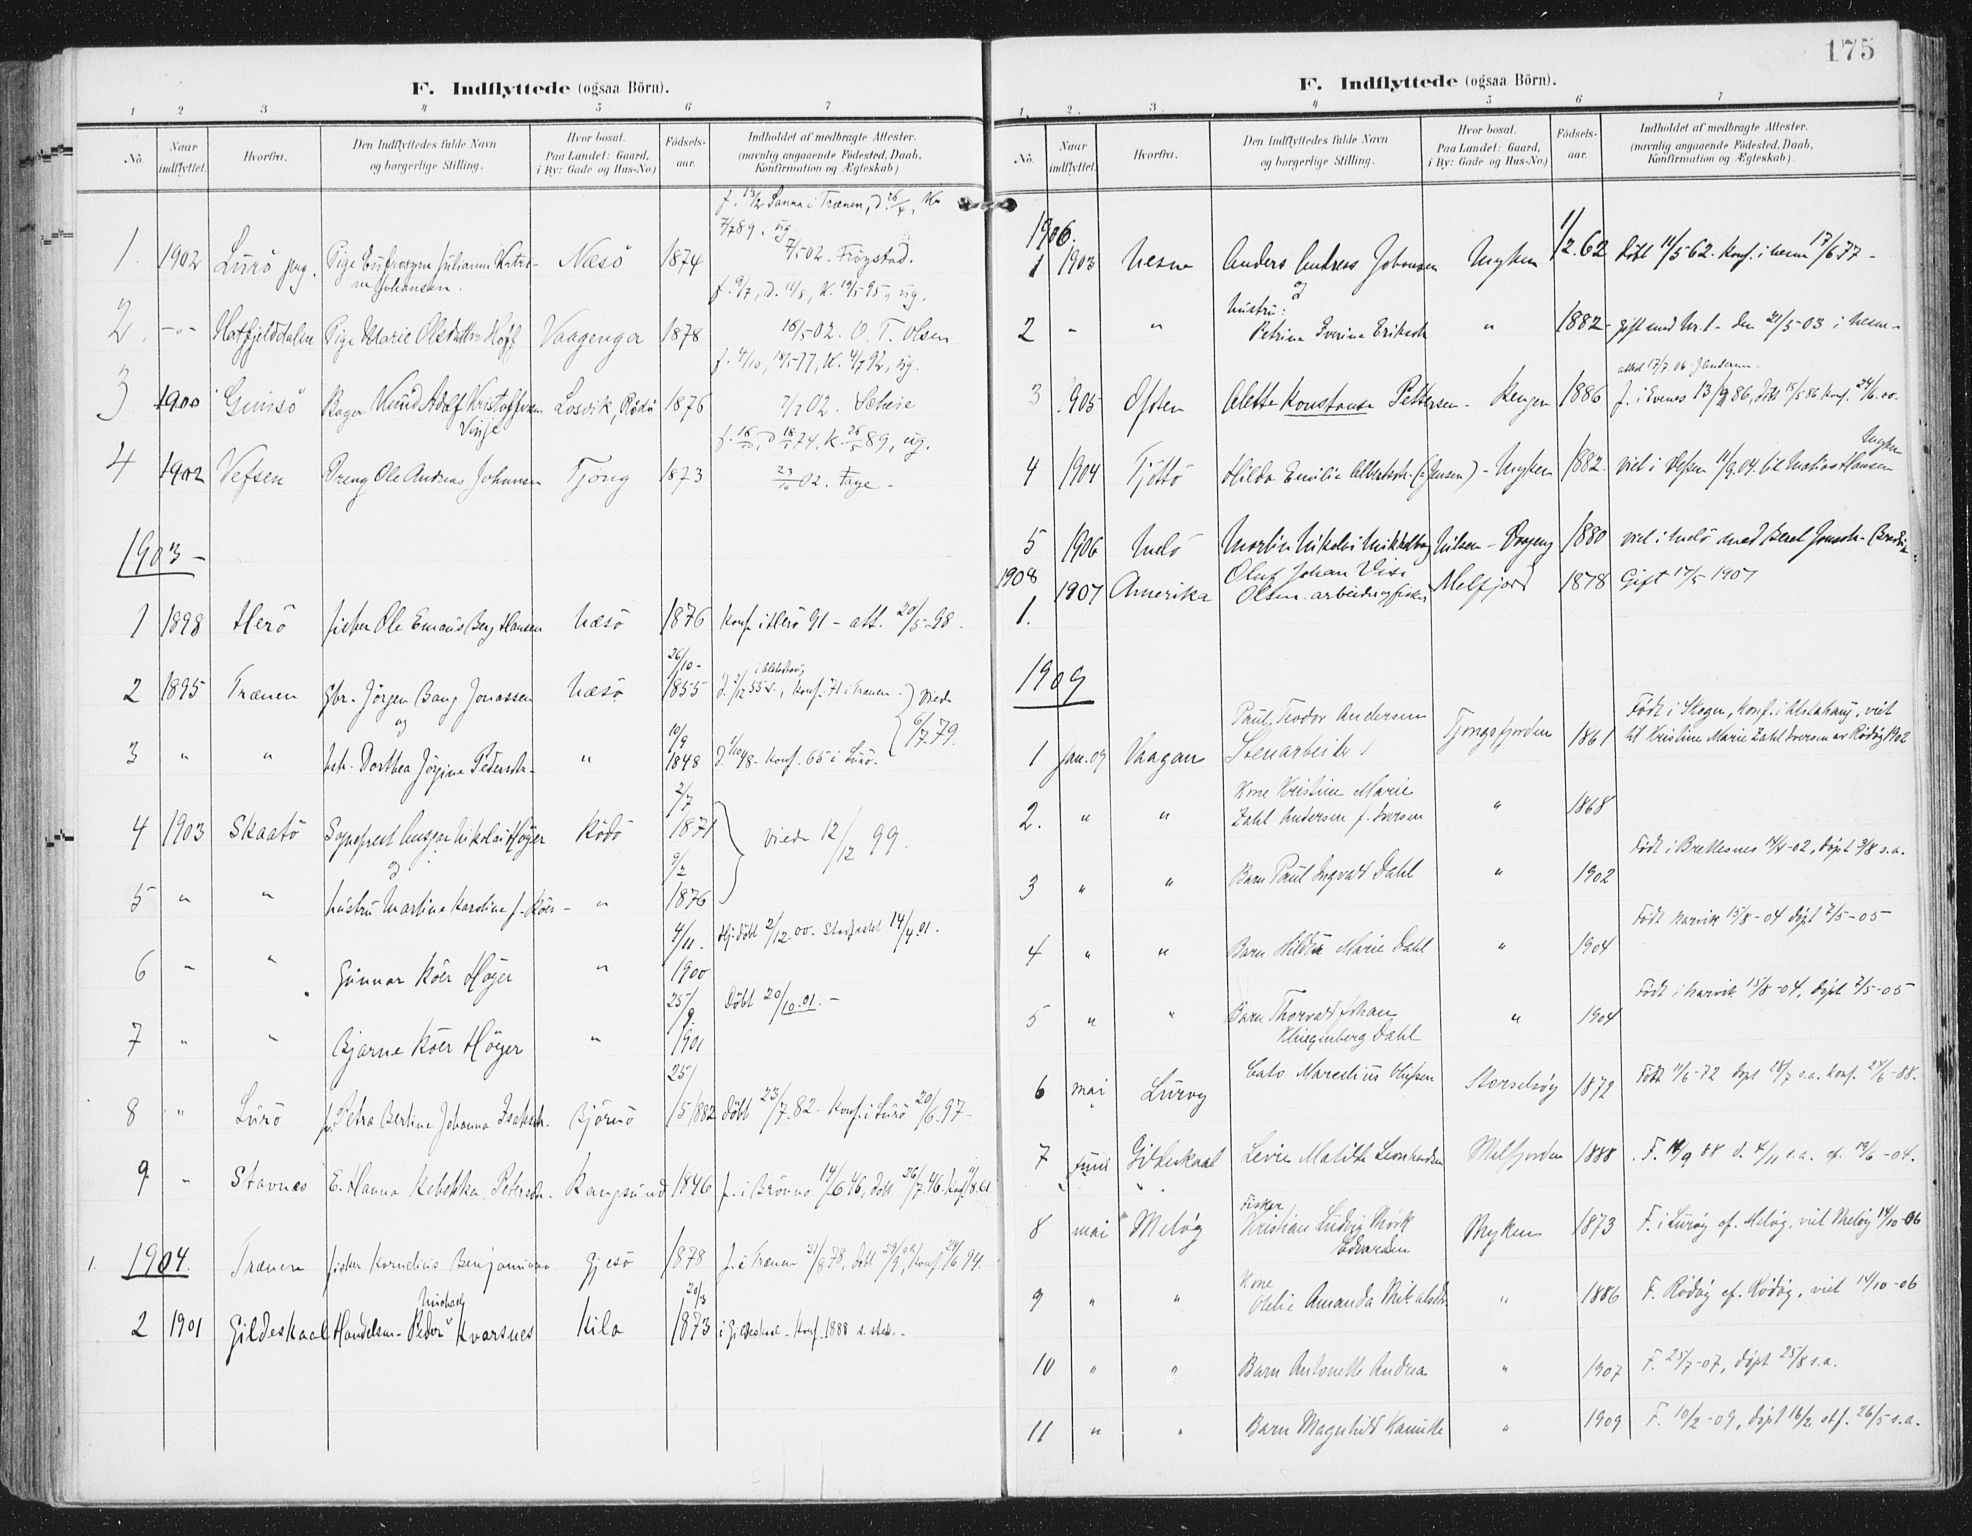 F. Indflyttede (ogsaa Börn).
1 2 3 4 5 6 7
No. Naar indflyttet. Hvorfra. Den Indflyttedes fulde Navn og borgerlige Stilling. Hvor bosat. Paa Landet: Gaard, i By: Gade og Hus-No.) Födsels-aar. Indholdet af medbragte Attester. (navnlig angaaende Födested, Daab, Konfirmation og Ægteskab)
f. 13/2 Sanna i Trænen, d. 26/4, K.
7/7 89. ug.
1. 1902 Lurö pgj. Pige Eufrosyne Julianne Katri- Næsö 1874 7/5 02. Frögstad.
ne Johansen. f. 9/7, d. 11/8, K. 19/5 95, ug.
2. -"- Hatfjelddalen Pige Marie Olsdatter Hoff Vaagenga 1878 16/5 02. O. T. Olsen
f. 4/10, 18/5 77, K. 4/7 92, ug.
3 1900 Gimsö Bager Knud Adolf Kristoffersen Losvik, Rödö 1876 7/7 02. Scheie
Vinje f. 16/10, d 18/1 74, K. 26/5 89, ug.
4 1902 Vefsen Dreng Ole Andreas Johansen Tjong 1873 23/10 02. Faye -
1903 -
1 1898 Herö fisker Ole Emaus Berg Hansen Næsö 1876 Konf. i Herö 91 - att. 20/5-98.
26/10-
2 1895 Trænen gbr. Jörgen Bang Jonassen Næsö 1855 Konf. 71 i Trænen -) viede
og 10/9 6/7 79.
3 " " hst. Dorthea Jörgine Pedersdtr. " 1848 Konf. 65 i Lurö.
2/7
4 1903 Skaatö Sogneprest Nikolai Höyer Rödö 1871 Viede 12/12 99.
og 9/2
5 " " hustru Martine Karoline f. Köer - " 1876
4/11. Hj. döbt 2/12.00. Stadfæstet 14/4 01.
6 " " Gunnar Köer Höyer " 1900
25/9 Döbt 20/10.01. -
7 " " Bjarne Köer Höyer " 1901
25/
8 " Lurö p. Petra Bertine Johanna Isaksdtr. Björnö /5 1882 Döbt 23/7.82 - Konf. i Lurö 20/6.97 -
9 " Stavnes E. Hanna Rebekka Petersdtr. Rangsund 1846 f. i Brönnö 14/6 46, döbt 26/7.46.
1904.
1. Trænen fisker Kornelius Benjaminsen Gjesö 1878 f. i Trænen 21/8 78, döbt 29/9, Konf. 24/6 94.
20/3
2 1901 Gildeskaal Handelsm. Peder Michael Kvarsnes Kila 1873 i Gildeskaal - Konf. 1888 s. sted. -
175
F. Indflyttede (ogsaa Börn).
1. 2. 3. 4 5 6 7
No. Naar indflyttet. Hvorfra. Den Indflyttedes fulde Navn og borgerlige Stilling. Hvor bosat. Paa Landet: Gaard, i By: Gade og Hus-No.) Födsels-aar. Indholdet af medbragte Attester. (navnlig angaaende Födested, Daab, Konfirmation og Ægteskab).
1906.
1 1903 Nesne Anders Andreas Johansen Myken 1/2.62 Döbt 11/5 62. Konf. i Nesne 17/6 77 -
og
hustru:
2 - " Petrine Iverine Eriksdtr " 1882 - gift med Nr. 1 - den 21/5-03 i Nesne -
3 1905 Ofoten Alette Konstanse Pettersen - Rengen 1886 f. i Evenes 13/2 86, döbt 15/5 86 Konf. 24/6.00.
Myken
4 1904 Tjöttö Hilda Emilie Albertsdtr. (: Jensen) - Myken 1882. viet i Vefsen 11/9.04. til Mathias Hansen
5 1906 Indö Martin Nikolai Nilsen - Vaageng 1880 viet i Melö med Beret Jonsdtr.
1908 Oluf Johan Visi
1. 1907 Amerika Olsen - arbeider og fisker Melfjord 1878 Gift 17/5 1907
1909
Paul Teodor Andersen Født i Skogn, konf. i Alstahaug, viet
1 Jan. 09 Vaagan Stenarbeider Tjongsfjorden 1861 til Kristine Marie Zahl Iversen av Rödöy 1902
Kone Kristine Marie
2. " " Zahl Andersen f. Iversen " 1868
Født i Brettesnes 14/4-02, døpt 3/8 s.a.
3 " " Barn Paul Ingvald Dahl " 1902
Født Narvik 15/8-04 døpt 7/5-05
4 " " Barn Hildur Marie Dahl " 1904
Født i Narvik 15/8-04, døpt 7/5-05
5 " " Barn Thorvald Johan " 1904
Klingenberg Dahl
6 mai Lurøy Cato Marselius Olufsen Storselsøy 1872 Født 11/6-72 døpt 28/7 s.a. konf. 24/6-88.
7 Juni Gildeskaal Levie Matilde Leonhardsen Melfjorden 1888 F. 14/9 88 d. 4/11 s.a. cf. 19/6-04.
Fisker
8 mai Meløy Kristian Ludvig Mørk Myken 1873 F. i Lurøy cf. Meløy, viet Meløy 14/10-06
Edvardsen
Kone
9 " " Otelie Amanda Mikalsdtr. " 1886 F. Rødøy cf. Rødøy, viet 14/10-06
10 " " Barn Antonette Andrea " 1907 F. 25/7-07, døpt 25/8 s.a.
11 " " Barn Magnhild Kamilla " 1909 F. 10/2-09, døpt 16/2, stf. 26/5 s.a.